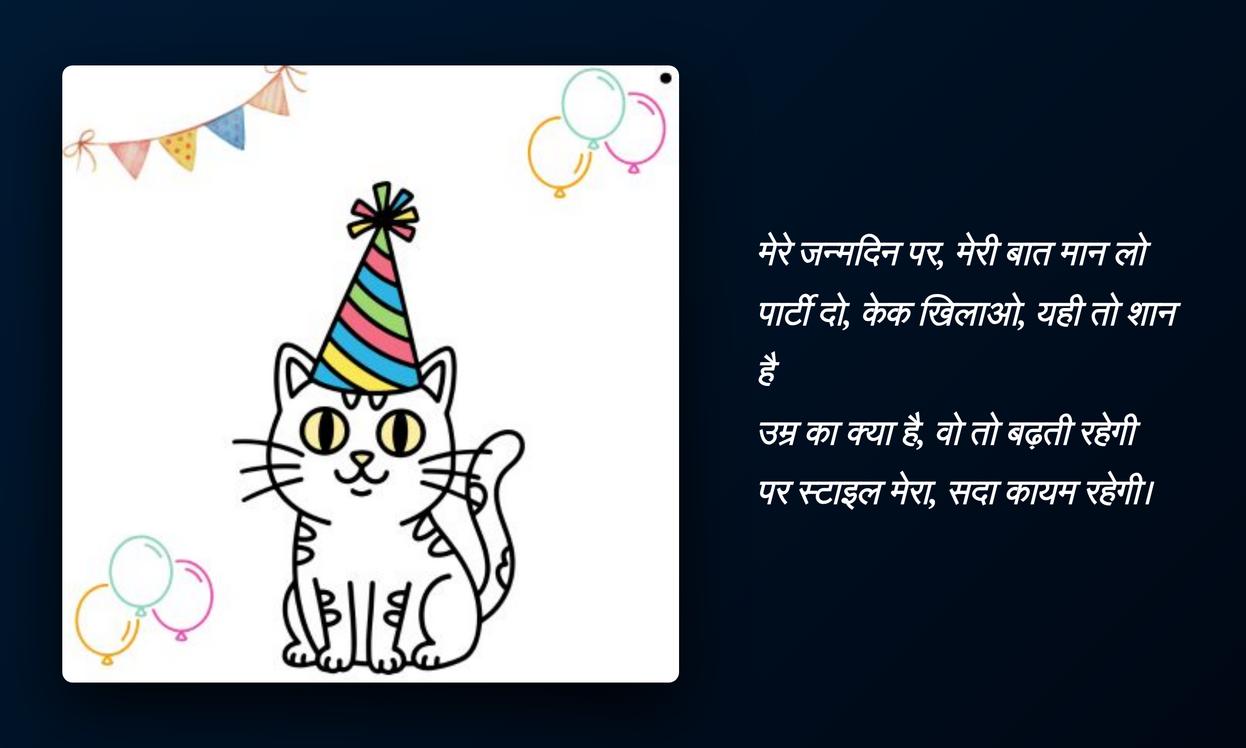 मेरे जन्मदिन पर, मेरी बात मान लो
पार्टी दो, केक खिलाओ, यही तो शान
है
उम्र का क्या है, वो तो बढ़ती रहेगी
पर स्टाइल मेरा, सदा कायम रहेगी।